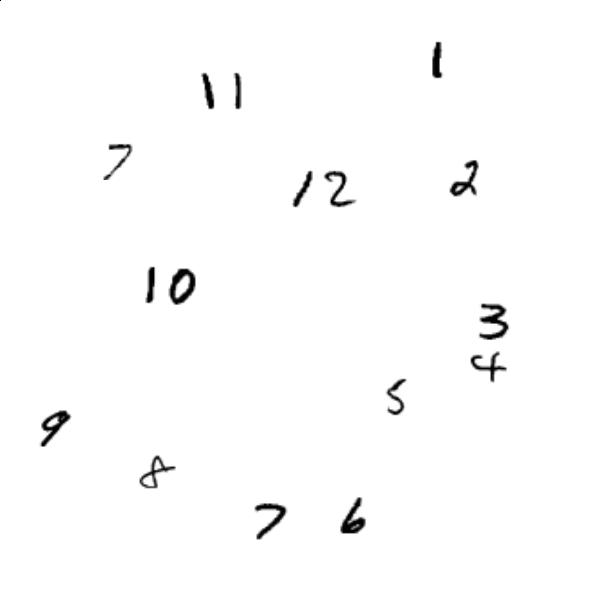 1
11
7
12
2
10
3
4
5
9
8
7
6